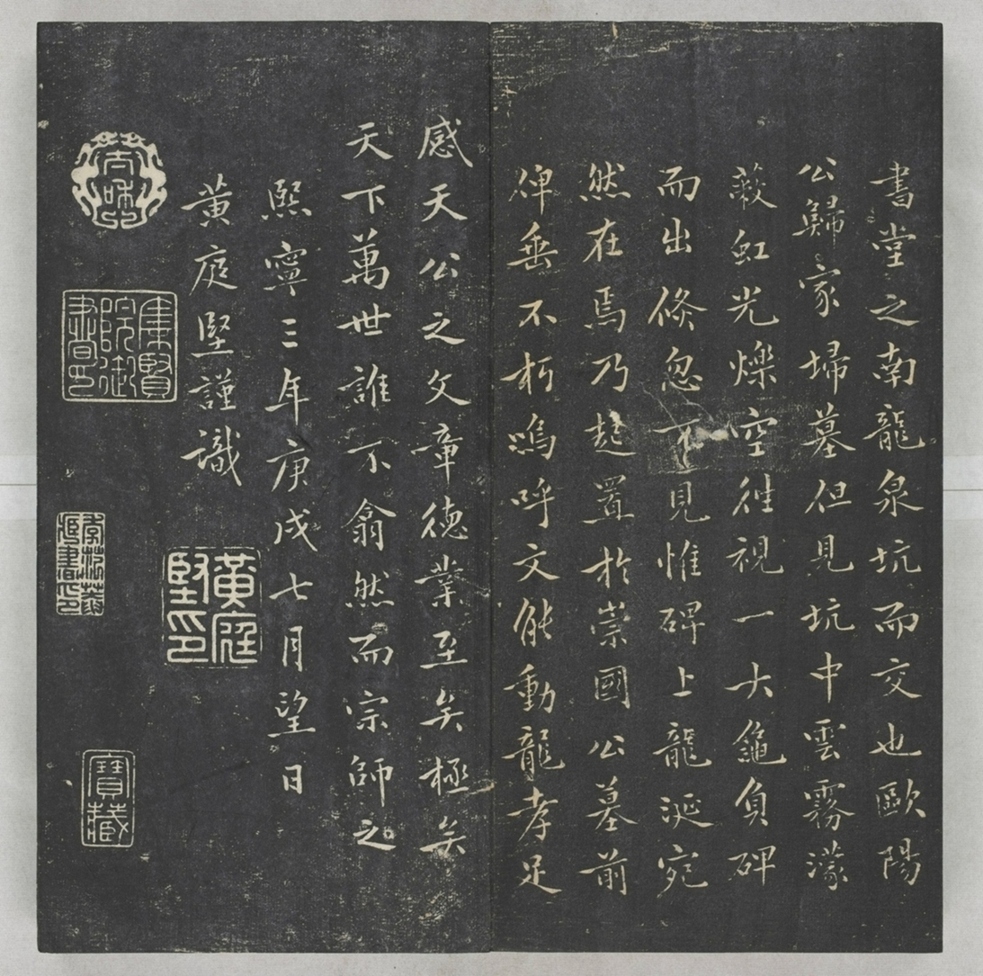 書堂之南龍泉坑而交也歐陽
公歸家埽墓但見坑中雲霧濛
蔽虹光爍空往視一大龜負碑
而出倐忽不見惟碑上龍涎宛
然在焉乃起置於崇國公墓前
俾垂不朽嗚呼文能動龍孝足
感天公之文章德業至矣極矣
天下萬世誰不翕然而宗師之
熙寧三年庚戌七月望日
黃庭堅謹識
黃庭堅印
集賢院御書印
寶藏